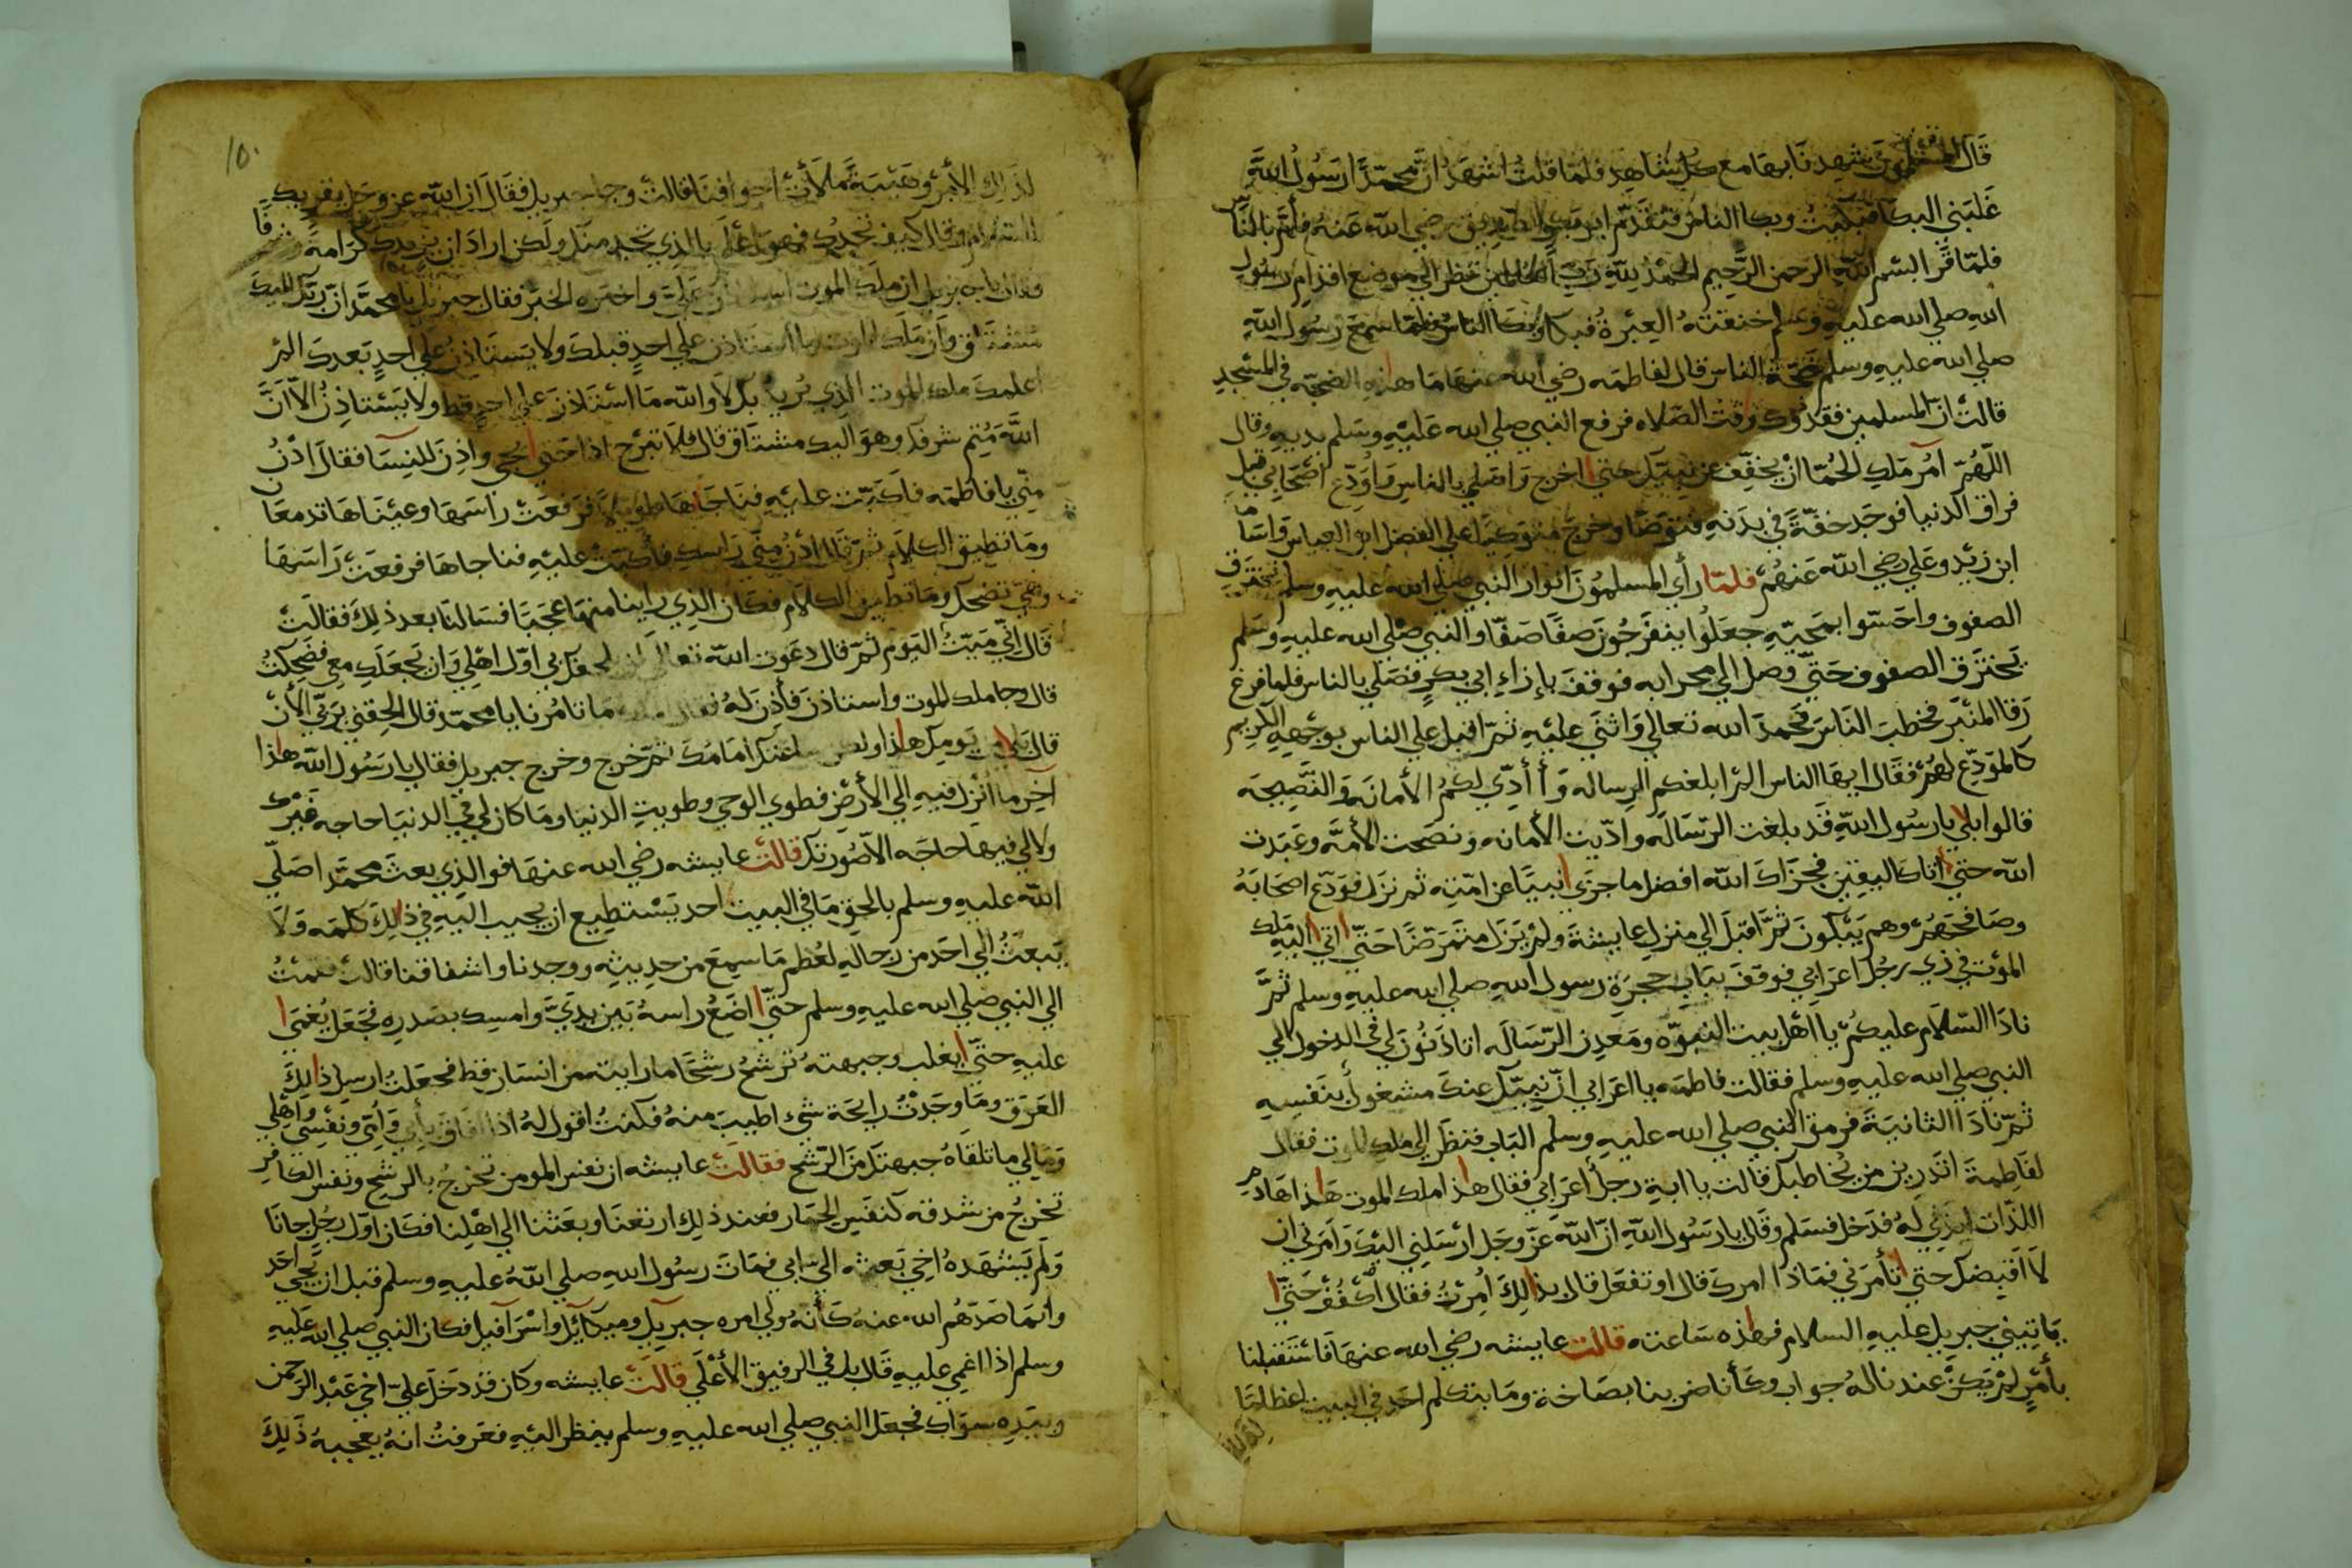 قَالَ المسْلمُونَ شهدنَا بهَا مع كل شَاهِد فلمّا قلتُ اشهَدُ انّ محمّدًا رَسُولُ اللهِ
غَلبَني البكا فبَكيتُ وبكا الناسُ فتقَدّم ابو بكر الصّديق رضي اللهُ عَنهُ فأَمّ بالنَّاس
فلمّا قرَا بسْم اللهِ الرّحمن الرَّحِيم الحمْدُ للهِ رَبّ العَالمين نظر الي موضع اقدام رسُول
اللهِ صلي الله عليهِ وسلم خنقتهُ العِبْرةُ فبكا وبَكا الناسُ فلمّا سمعَ رسُول اللهِ
صلي الله عليهِ وسلم ضَجّة الناس قال لفاطمه رضي الله عنهَا مَا هذهِ الضجّه في المسْجدِ
قالتْ انّ المسلمين فقدُوك وَقت الصّلاه فرفع النبي صلي الله عَليْهِ وسَلم يديهِ وقال
اللّهُمّ آمُر مَلك الحُمّا انْ يخفِّف عن نبيّك حتي اخرج وَاصَلي بالناس وَاُوَدِّع اصْحَابي قبل
فراق الدنيا فوجَد خفّةً في بدَنهِ فتوَضّا وخرجَ متوَكيًا علي الفضل ابن العباس واسَامَه
ابن زيْد وعَلي رضي اللهُ عَنهُمْ فلمّا رأي المسلمُونَ انوار النبي صلي الله عليهِ وسلم تخترق
الصفوف واحَسّوا بمَجيّهِ جعَلُوا ينفَرجُونَ صفًا صَفّا والنبي صلي الله عليهِ وسَلم
يَخترَق الصفوف حَتّي وصل الي محرابه فوقفَ بإزاءِ ابي بكرٍ فصَلي بالناس فلما فرغ
رَقا المنْبَر فخطبَ النَاسَ فحَمدَ الله تعالي وَاثنَي عليْهِ ثمّ اقبل علي الناس بوجْههِ الكريم
كالمَوَدّع لهُمْ فقَال ايهَا الناس المْ ابلغكم الرسَاله وَأ أدِّي لكمُ الأمانَه وَالنَّصِيحَه
قالوا بلي يا رسُول اللهِ قَد بلغت الرّسَاله وادّيت الأمانه ونصَحت الأمّه وعَبَدت
الله حتي اتاك اليقين فجزَاكَ الله افضل ما جزَي نبيًا عن امّتهِ ثم نزل فودّع اصحَابَهُ
وصَافحَهُمْ وهم يَبْكُونَ ثمّ اقبَلَ الي منزل عايشةَ ولمْ يَزَل متمَرّضًا حَتّي اتي اليْهِ مَلك
الموْت في ذي رجُل اعرَابي فوقفَ ببَاب حجرَةِ رسول اللهِ صلي الله عليهِ وسلم ثمَّ
نادَا السّلام عليكمُ يا اهْل بيت النبوّه ومَعدِن الرّسَاله اتاذَنُونَ لي في الدخول الي
النبي صلي الله عليهِ وسلم فقالت فاطمَه يا اعرَابي انّ نبيّك عنك مشغول بنَفسِهِ
ثمّ نادَا الثانيَةَ فرمق النبي صلي الله عليهِ وسلم البَاب فنظرَ الي ملك الموت فقال
لفَاطِمَةَ اتَدرِين من يُخاطبك قالت يا ابةِ رجلٌ اعرَابيٌ فقال هذا ملك الموت هذا هَادِم
اللذّات ايذني لَهُ فدَخل فسَلم وقَال يا رَسُول اللهِ انّ اللهَ عَزّ وجَل ارسَلني اليْك وَامَرني ان
لَا اقبِضكَ حتي تأمرَني فمَاذا امرك قال اوتفعَل قال بذالِكَ اُمِرْتُ فقال اكْفُفْ حَتّي
يَاتيني جبريل عليهِ السلام فهذه سَاعته قالت عايشه رضي الله عنهَا فَاسْتَقبَلنا
بأمْرٍ لمْ يَكنْ عندنا لهُ جواب وكأنا ضربنا بصَاخة ومَا يتكلم احَد في البيت اعظامًا
لذلِك الأمْر وهَيْبَةً مَلأتْ اجوافنا قالتْ وجا جبريل فقَالَ ان الله عز وجَل يقريك
السّلام وقال كيف تجدُك وَهوَ اعْلم بالذِي تجد منْك ولكن ارادَ ان يزيدكَ كرَامةً وشرَفًا
فقال يا جبريل ان ملك الموت استاذن عَليّ واخبَره الخبَر فقال جبريل يا محمّد انّ ربّك اليكَ
مُشتَاق وَان مَلك الموت ما استاذن علي احدٍ قبلكَ ولا يَستَاذِنُ علي احدٍ بَعدكَ المْ
اعلمكَ ملك الموت الذي يُريد بك لا والله مَا اسْتَاذن علي احدٍ قط ولا يَسْتاذِنُ الاّ انّ
اللهَ مُتِم شرفك وهوَ اليك مشتَاق قال فلا تبرَح اذا حَتي يجي واذِنَ للنِسَا فقالَ ادْنُ
منّي يا فاطمَه فاكَبّت عليْهِ فنَاجَاهَا طويلًا فرفعَتْ راسَهَا وعينَاهَا تدمعَا
ومَا تطيق الكلام ثمّ قال ادْنُ مِنّي رَاسك فأكَبّت عليْهِ فناجاهَا فرفعَتْ رَاسَهَا
وهي تضحك ومَا تطيق الكلام فكَان الذي راينا منهَا عجَبًا فسَالنَا بعد ذلكَ فقالَتْ
قَال انّي مَيّتُ اليَوم ثمّ قال دعَوت الله تعالي ان يجعلك بي اوّل اهْلي وَان يَجعَلك معِي فضَحكتُ
قال وجا ملك الموت واستاذن فأذن لهُ فقال مَا تامُرنا يا محمّد قال الحقني برَبّي الأنْ
قال بلي من يَومِكَ هاذا ولكن ساعتك امَامَك ثمّ خرج وخرج جبريل فقال يا رسُول اللهِ هَاذا
آخِر ما انزل فيهِ الي الأرْض فطوي الوحي وطويتِ الدنيا ومَا كان لي في الدنيَا حاجه غيْرك
ولا لي فيها حاجَه الا حُضورك قالت عايشه رضي الله عنهَا فوالذِي بعث محمّدا صَلّي
اللهُ عليهِ وسلم بالحق مَا في البيت احد يَسْتطِيع ان يجيب اليْهِ في ذلكَ كلمَه وَلَا
يَبعثُ الي احَد من رجالهِ لعُظم مَا سمِعَ من حدِيثه ووجدنا واشفاقنا قالت فقمْتُ
الي النبي صلي الله عليهِ وسلم حتّي اضَعُ راسهُ بَين يدَيّ وامسك بصَدرهِ فجَعَل يُغمَي
عليهِ حتّي يغلب وجبهتهُ ترشحُ رشحًا ما رايته من انسَان قط فجعَلتُ ارسِل ذالِكَ
العَرَق ومَا وجَدْتُ رايحَة شيْء اطيبَ منهُ فكنتُ اقول لهُ اذا افاق بأبي وَامّي ونفْسِي وَاهْلي
وَمَالي ما تلقَاهُ جبهتك منَ الرّشح فقالتْ عايشه ان نفس المومن تخرجُ بالرشح ونفس الكَافر
تخرجُ من شدقه كنفَس الحمَار فعند ذلك ارتعنَا وبعَثنا الي اهْلنا فكَان اوّل رجُل جانَا
وَلمْ يَشهَدهُ اخي بَعثه الي ابي فمَات رسُول اللهِ صلي اللهُ عليهِ وسلم قبل ان يَجي احَد
وانّمَا صَدّهُم الله عنهُ كَأنه وُلي امره جبريل وميكآئيل واسْرَآفيل فكَان النبي صلي الله عَليهِ
وسلم اذا اغمي عليهِ قَال بل في الرفيق الأعْلَي قالَتْ عايشه وكان قد دَخَل عَليّ اخي عَبْد الرّحمن
وبيَدِه سوَاك فجعَل النبي صلي الله عليهِ وسلم ينظر اليْهِ فعَرفتُ انهُ يعجبهُ ذَلِكَ